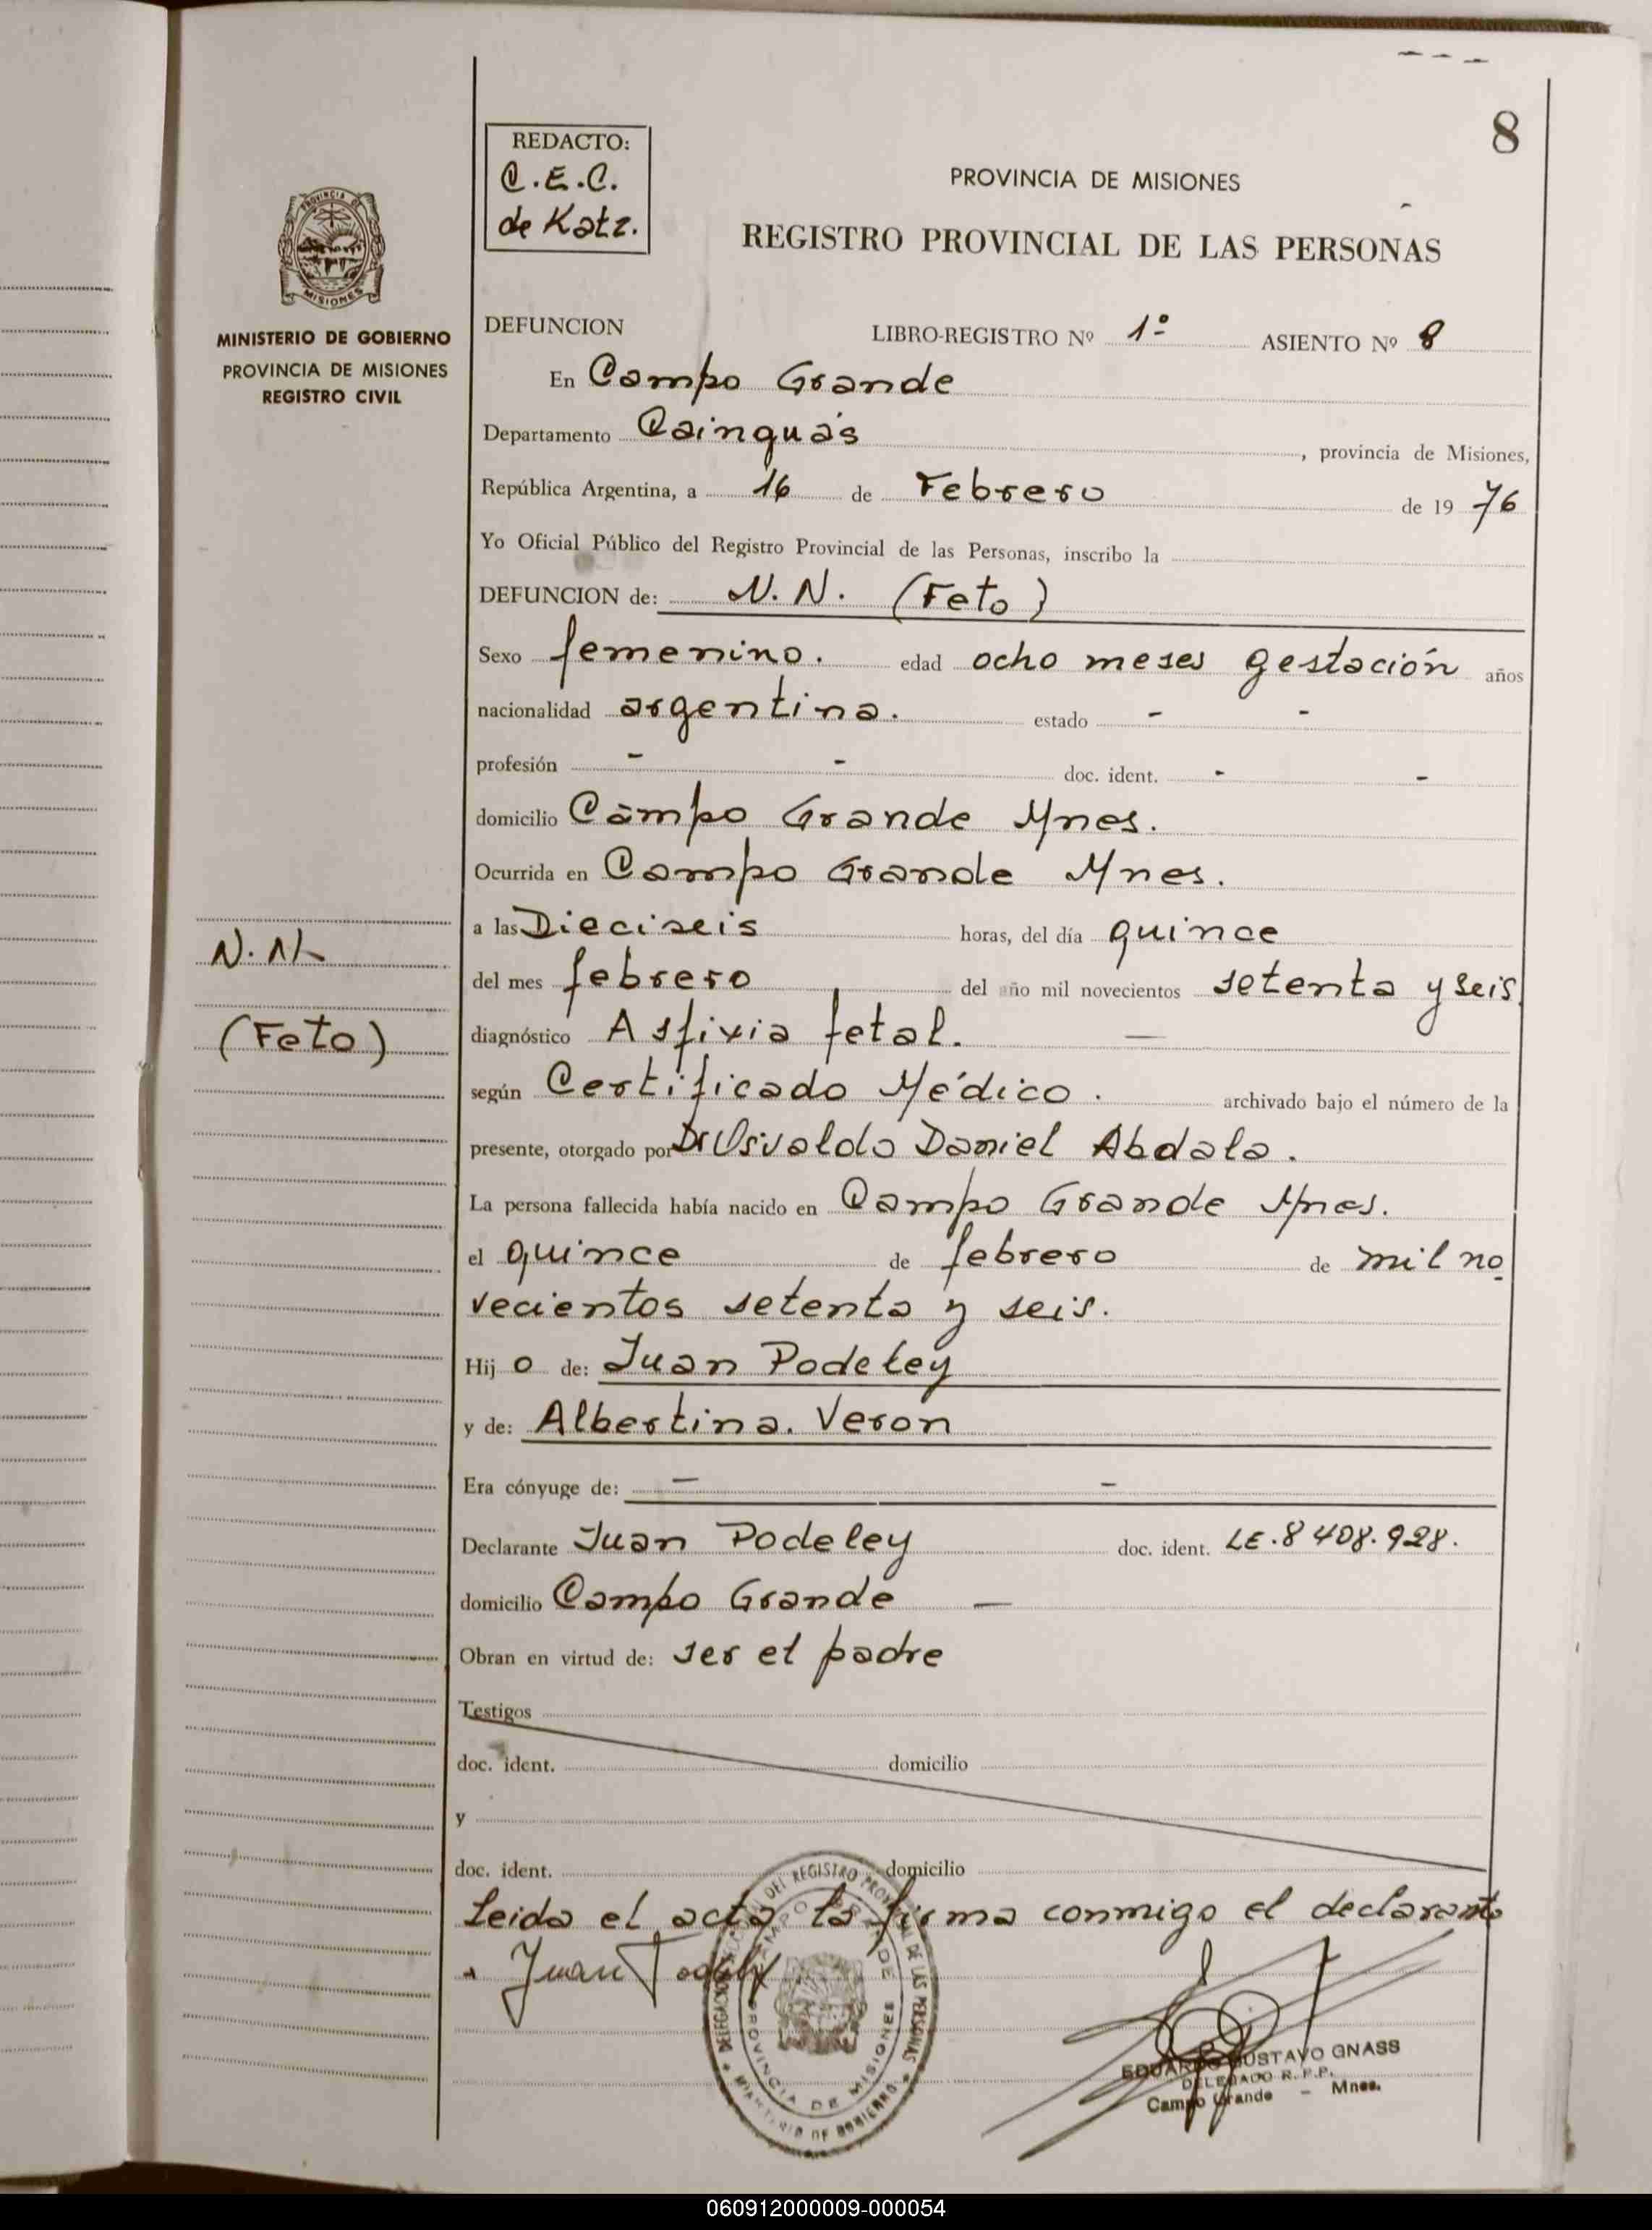 8
REDACTO:
C.E.C.
de Katz.
PROVINCIA DE MISIONES
REGISTRO PROVINCIAL DE LAS PERSONAS
PROVINCIA DE
MISIONES
MINISTERIO DE GOBIERNO
PROVINCIA DE MISIONES
REGISTRO CIVIL
DEFUNCION LIBRO-REGISTRO Nº 1º ASIENTO Nº 8
En Campo Grande
Departamento Cainguás, provincia de Misiones,
República Argentina, a 16 de Febrero de 1976
Yo Oficial Público del Registro Provincial de las Personas, inscribo la
DEFUNCION de: N.N. (Feto)
Sexo femenino. edad ocho meses gestación años
nacionalidad argentina. estado - -
profesión - - doc. ident. - -
domicilio Campo Grande Mnes.
Ocurrida en Campo Grande Mnes.
a las Dieciseis horas, del día quince
N.N.
del mes febrero del año mil novecientos setenta y seis
(Feto)
diagnóstico Asfixia fetal. —
según Certificado Médico. archivado bajo el número de la
presente, otorgado por Dr Osvaldo Daniel Abdala.
La persona fallecida había nacido en Campo Grande Mnes.
el quince de febrero de mil no
vecientos setenta y seis.
Hijo de: Juan Podeley
y de: Albertina. Veron
Era cónyuge de: — -
Declarante Juan Podeley doc. ident. LE.8408.928.
domicilio Campo Grande —
Obran en virtud de: ser el padre
Testigos
doc. ident. domicilio
y
doc. ident. domicilio
Leida el acta la firma conmigo el declarante
Juan Podeley
DELEGACION DEL REGISTRO PROVINCIAL DE LAS PERSONAS
CAMPO GRANDE
PROVINCIA DE MISIONES
MINISTERIO DE GOBIERNO
EDUARDO GUSTAVO GNASS
DELEGADO R.P.P.
Campo Grande - Mnes.
060912000009-000054